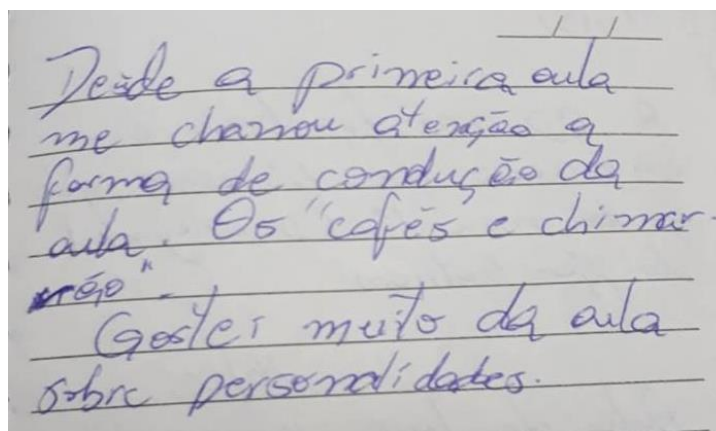 Desde a primeira aula
me chamou atenção a
forma de condução da
aula. Os "cafés e chimar-
rão".
Gostei muito da aula
sobre personalidades.